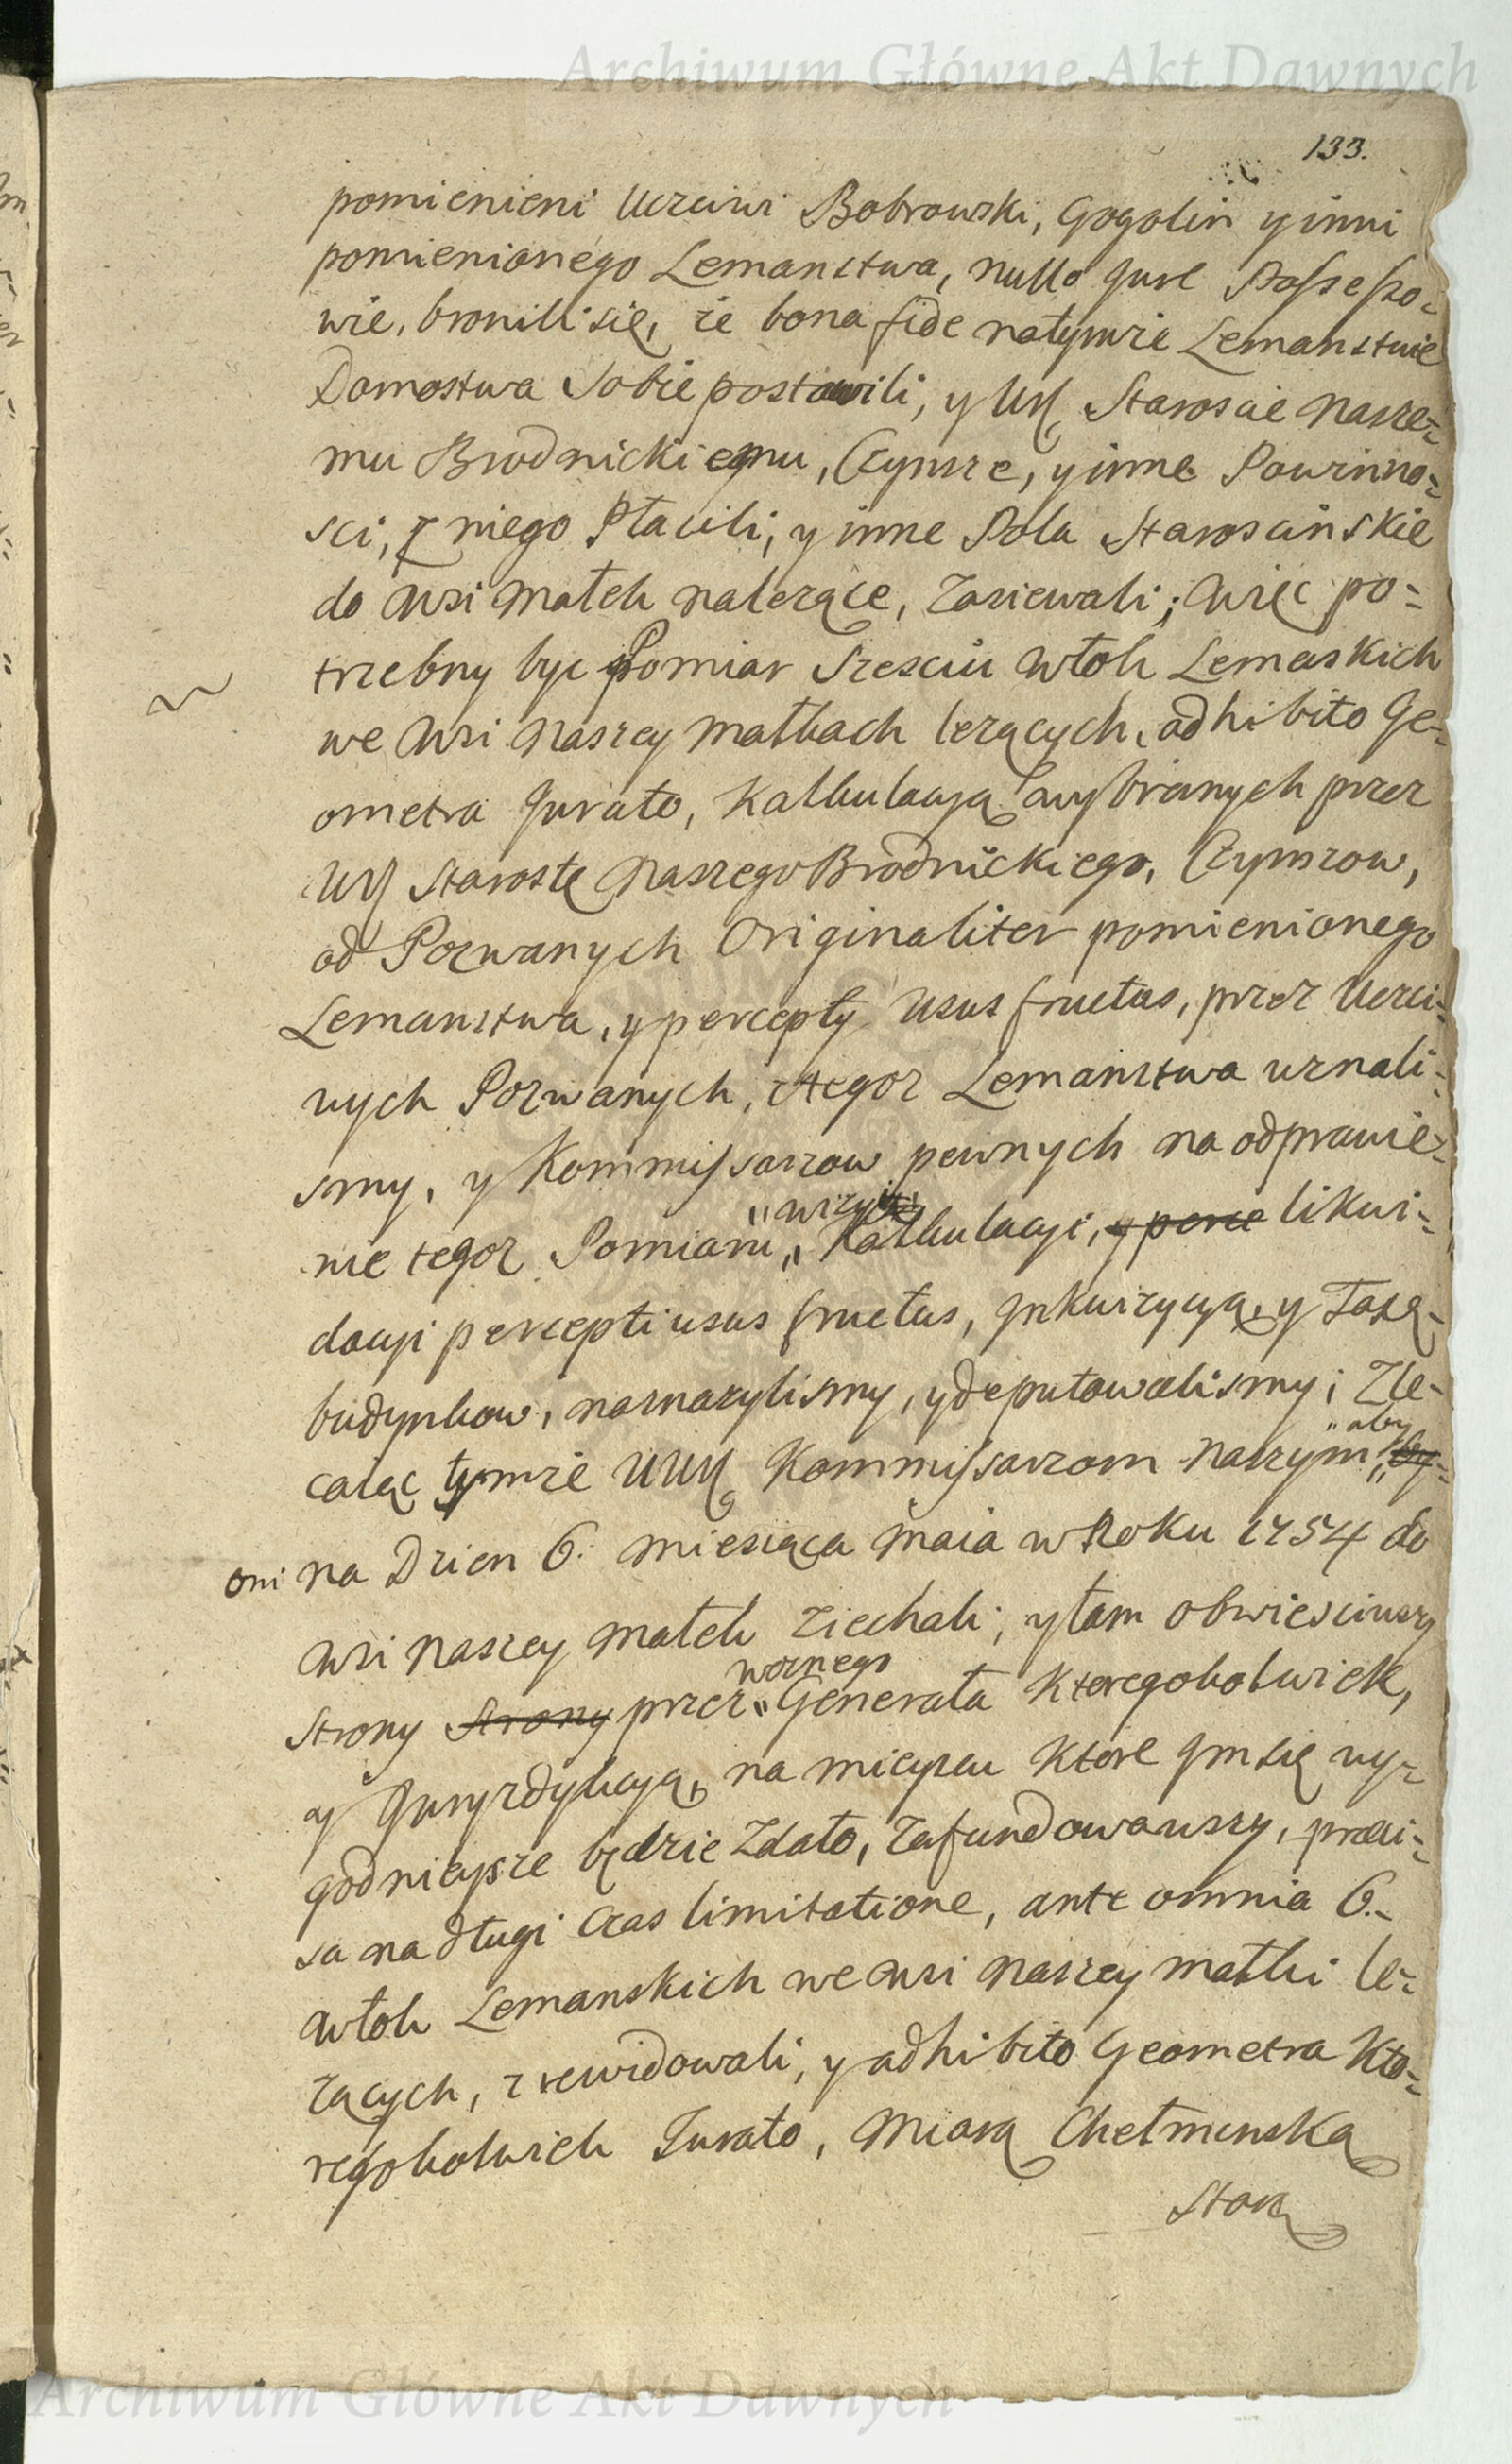 Archiwum Główne Akt Dawnych
133.
pomienieni Ucziwi Bobrowski, Gogolin y inni
pomienionego Lemanstwa, nullo Jure Possesso=
wie, bronili się, że bona fide natymże Lemanstwie
Domostwa Sobie postawili, y Ur. Staroscie Nasze=
mu Brodnickiemu, Czynsze, y inne Powinno=
sci, z niego Płacili, y inne Pola Starościńskie
do Wsi Małek należące, Zasiewali; Więc po=
trzebny być Pomiar Szesciu Włok Lemańskich
we Wsi Naszey Małkach leżących, adhibito Ge=
ometra Jurato, Kalkulacyą wybranych przez
Ur. Starostę Naszego Brodnickiego, Czynszow,
od Pozwanych Originaliter pomienionego
Lemanstwa, y percepty Usus fructus, przez Uczci=
wych Pozwanych, z tegoz Lemanstwa uznali=
smy, y Kommissarzow pewnych na odprawie=
nie tegoz Pomiaru, " Kalkulacyi, y perce likwi=
dacyi percepti usus fructus, Jnkwizycyą, y Taxą
budynkow, naznaczylismy, y deputowalismy; Zle=
"aby
caiąc tymże UUr. Kommissarzom Naszym, "
oni na Dzien 6. Miesiąca Maia w Roku 1754 do
Wsi Naszey Małek Ziechali; y tam obwiesciwszy
woznego
Strony Strony przez " Generała Ktoregokolwiek,
y Juryzdykcyą, na mieyscu Ktore Jm się wy=
godnieysze będzie Zdało, Zafundowawszy, praeci=
sa na długi Czas limitatione, ante omnia 6.
Włok Lemanskich we Wsi Naszey Małki le=
żących, zrewidowali, y adhibito Geometra Kto=
regokolwiek Jurato, Miarą Chełmińską
Starą
Archiwum Główne Akt Dawnych